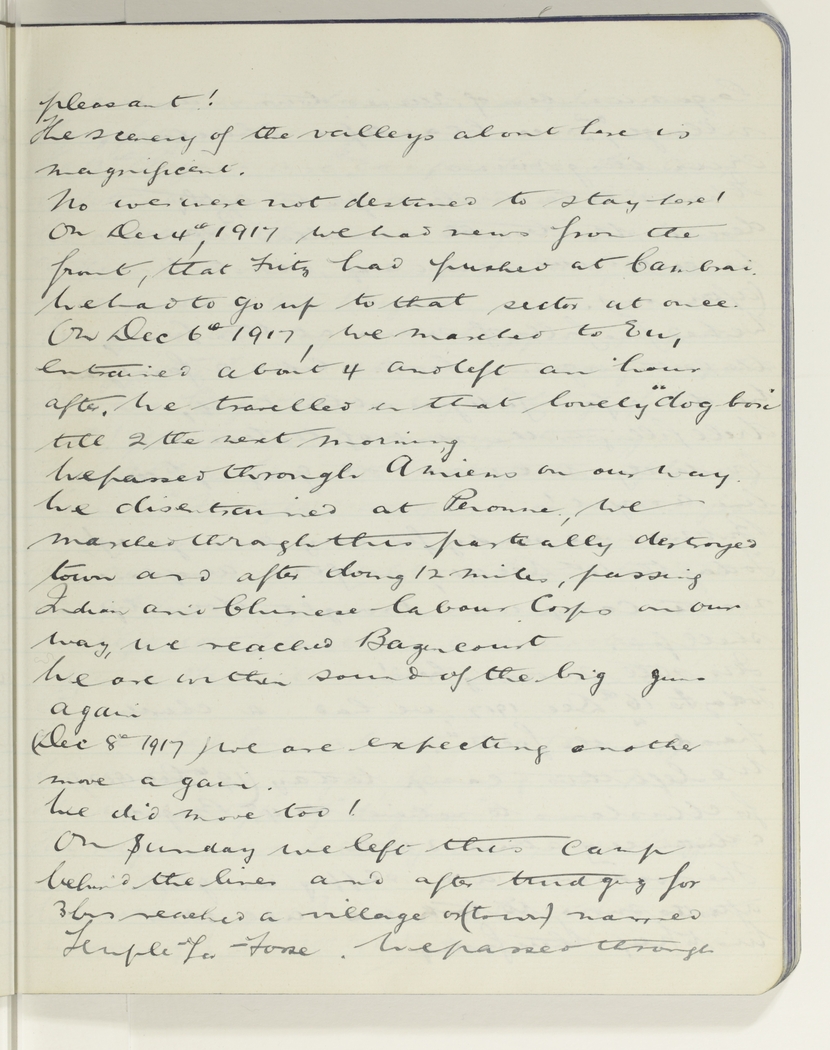 pleasant!
The scenery of the valleys about here is
magnificent.
No we were not destined to stay here!
On Dec 4th, 1917 we had news from the
front, that Fritz had pushed at Cambrai.
We had to go up to that sector at once.
On Dec 6th 1917, we marched to Eu,
entrained about 4 and left an hour
after. We travelled in that lovely "dog box"
till 2 the next morning
We passed through Amiens on our way.
We disentrained at Peronne, we
marched through this partially destroyed
town and after doing 12 miles, passing
Indian and Chinese Labour Corps on our
way, we reached Bazincourt
We are within sound of the big guns
again
(Dec 8th 1917) we are expecting another
move again.
We did move too!
On Sunday we left this camp
behind the lines and after trudging for
3 hrs reached a village or (town) named
Temple-La-Fosse. We passed through